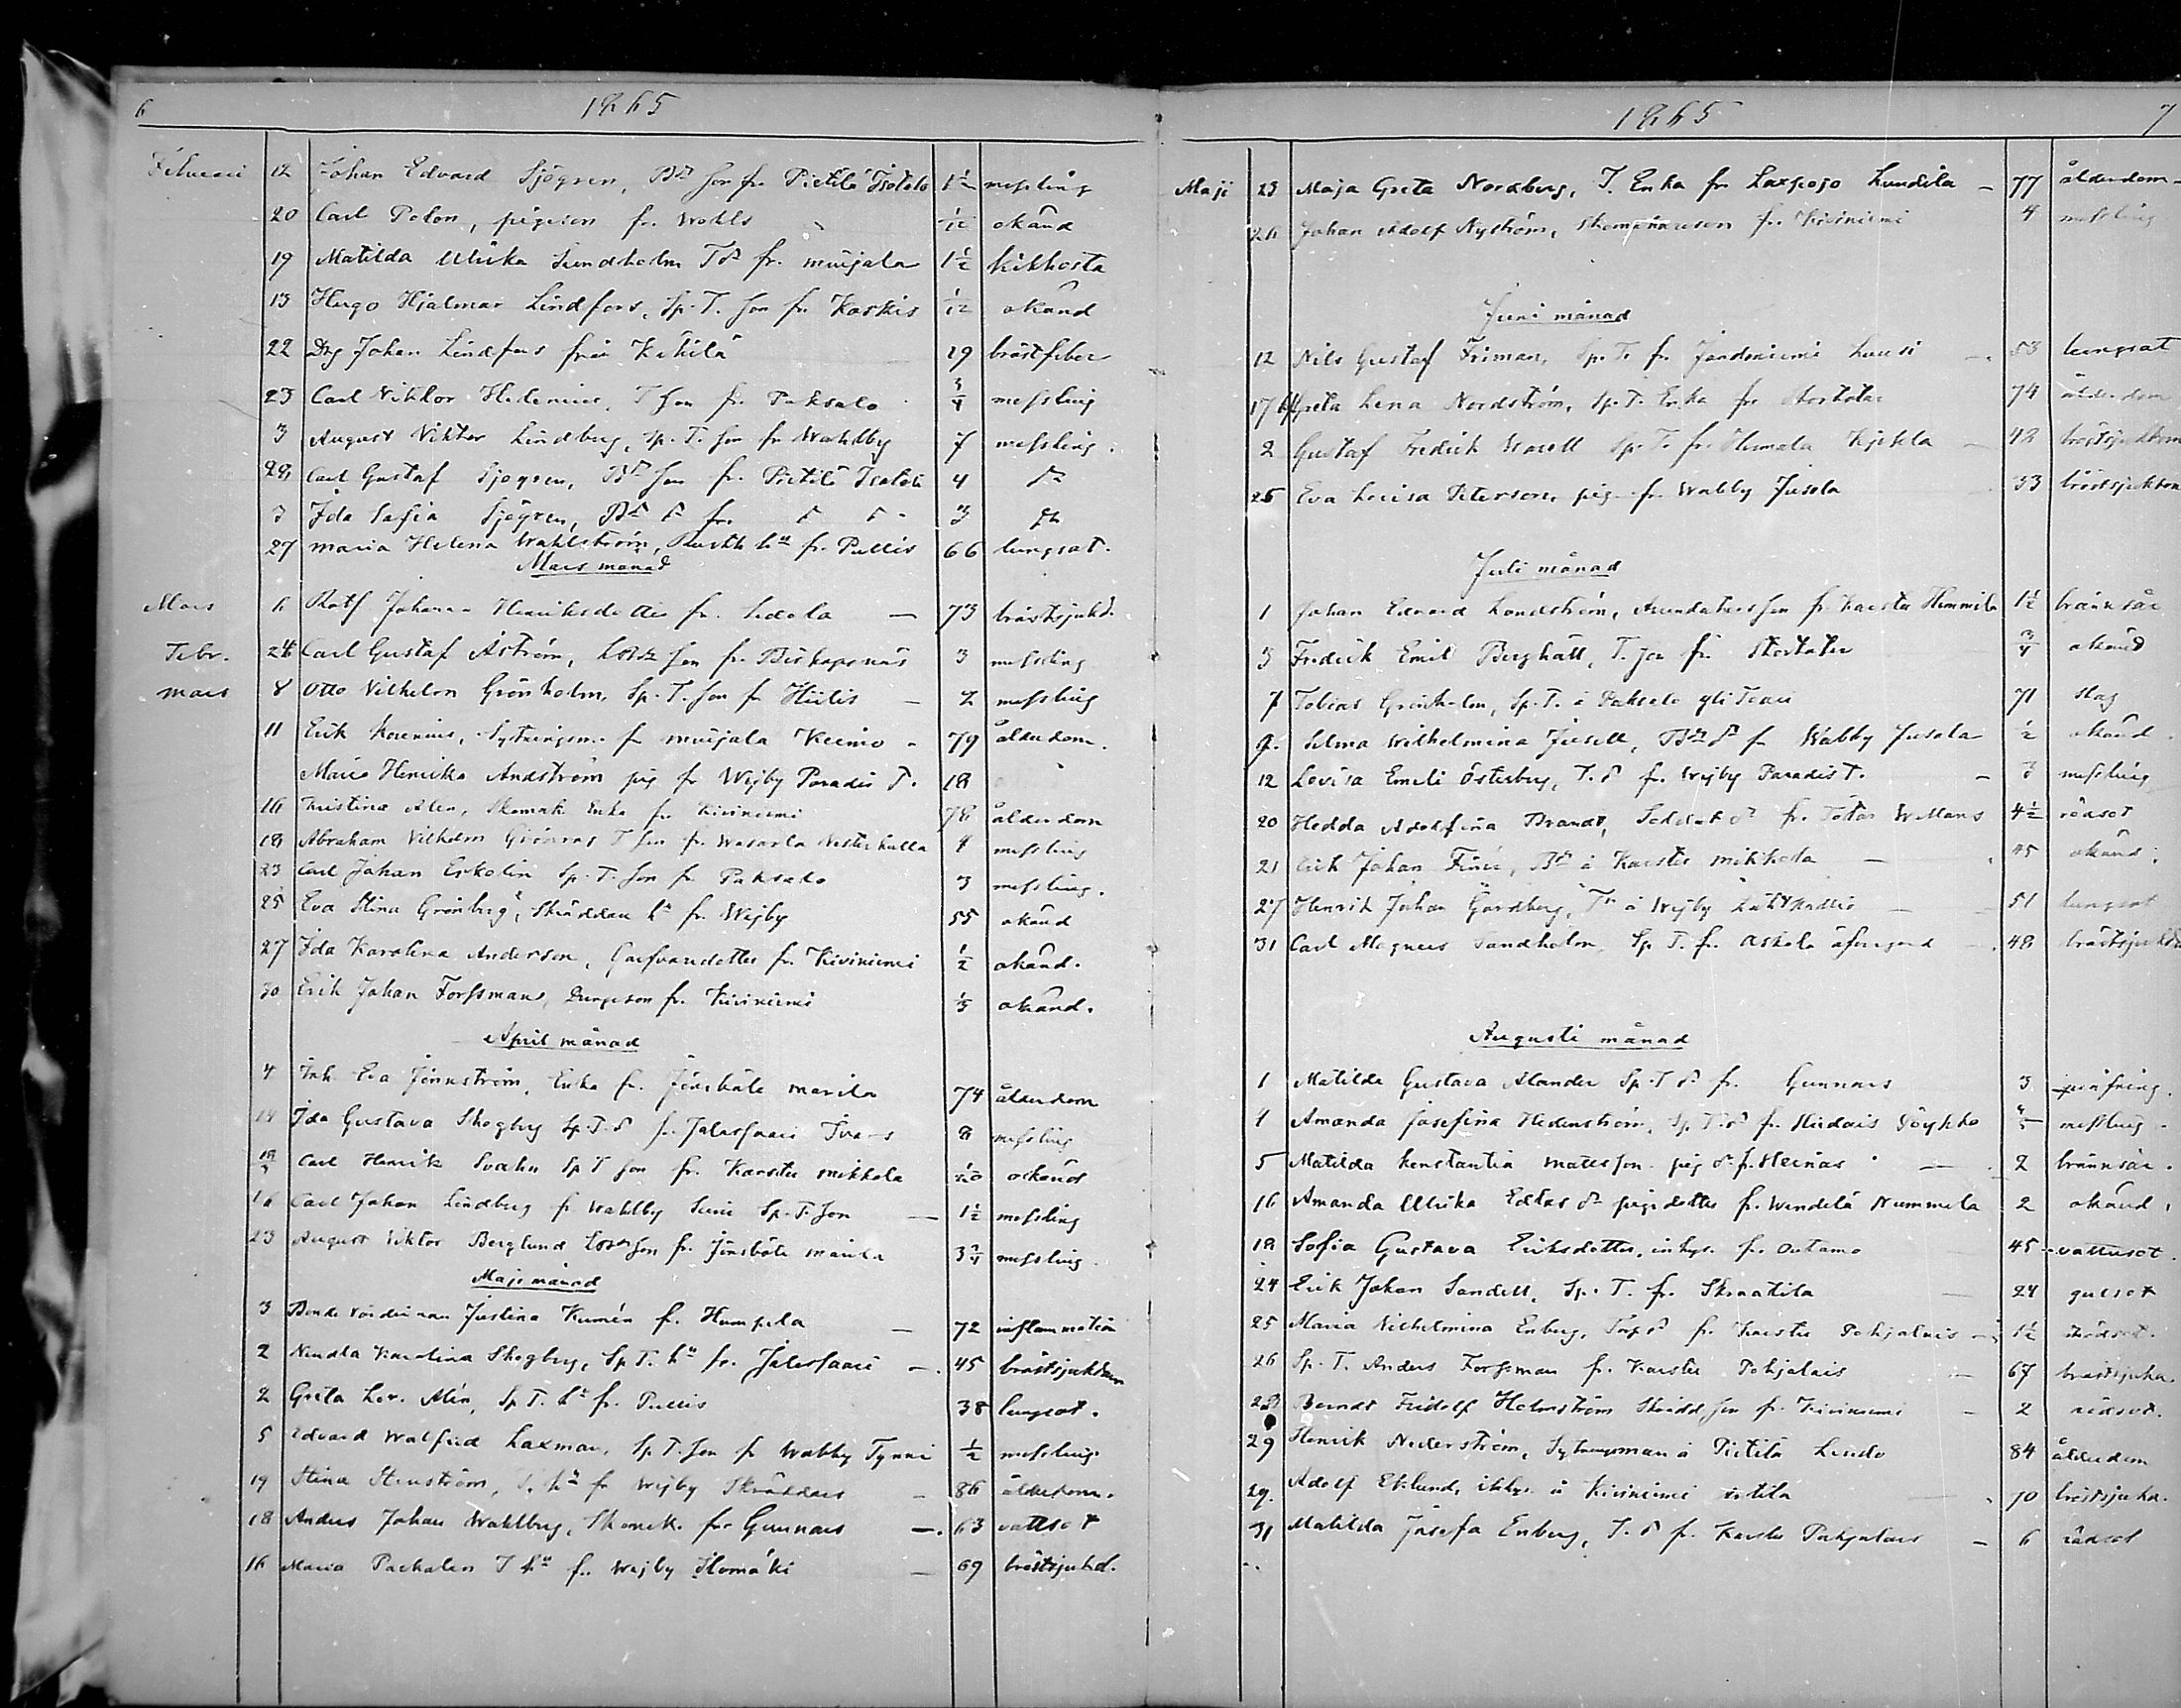 6 1865
Februari 12 Johan Edvard Sjögren, Bd son fr. Pietilä Isotalo 1½ messling
20 Carl Polon, pigeson fr. Wohls 1/12 okänd
19 Matilda Ulrika Sundholm T dr fr. muijala 1½ kikhosta
13 Hugo Hjalmar Lindfors, Sp. T. son fr. Koskis 1/12 okänd
22 Drg Johan Lindfors från Kihilä 29 bröstfeber
23 Carl Viktor Helenius, T son fr. Paksalo ¾ messling
3 August Viktor Lindberg, Sp. T. son fr Wahlby 7 messling.
28 Carl Gustaf Sjögren, Bd son fr. Pietilä Isotalo 4 do
3 Ida Sofia Sjögren, Bd dr fr. 3 do
27 Maria Helena Wahlström, hu fr. Pullis 66 lungsot.
Mars månad
Mars 6 Johanna Henriksdotter fr. Sedola — 73 bröstsjukd.
Febr. 24 Carl Gustaf Åström, son fr. Biskopsnäs 3 messling
mars 8 Otto Vilhelm Grönholm, Sp. T. son fr Hiilis — 2 messling
11 Erik Korenius, Sytningsm. fr muijala Keimo 79 ålderdom.
Maria Henrika Andström pig fr Wejby Paradis T. 18
16 Kristina Alen, Skomak Enka fr Kiviniemi 78 ålderdom
18 Abraham Vilhelm Grönroos T son fr. Wasarla Westerkulla 4 messling
23 Carl Johan Eskolin Sp. T. son fr Paksalo 3 messling.
25 Eva Stina Grönberg, Skräddare hu fr. Wejby 55 okänd
27 Ida Karolina Anderson, Garfvaredotter fr. Kiviniemi ½ okänd.
30 Erik Johan Forssman, Drngeson fr. Kiviniemi 1/3 okänd.
April månad
4 Inh. Eva Jernström, Enka fr. Jönsböle marila 74 ålderdom
14 Ida Gustava Skogberg Sp. T. dr fr. Jalassaari Ivars 8 messling
Carl Henrik Svahn Sp T son fr. Karstu mikkola okänd
16 Carl Johan Lindberg fr Wahlby Suni Sp. T. son — 1½ messling
23 August Viktor Berglund son fr. Jönsböle marila 3¾ messling.
Maji månad
3 Bonde Justina Kumén fr. Humpila — 72 inflammation
2 Karolina Skogberg, Sp T. hu fr. Jalassaari — 45 bröstsjukdom
2 Greta Lov. Alén, Sp T. hu fr. Pullis 38 lungsot.
5 Edvard Walfrid Laxman, Sp T. son fr Wabby Tynni ½ messling
19 Stina Stenström, T. hu fr Wejby Skräddars — 86 ålderdom.
18 Anders Johan Wahlberg, Skomak. fr Gunnars — 63 vattsot
16 Maria Pachalen T hu fr. Wejby Ilomäki — 69 bröstsjukd.
1865 7
Maji 23 Maja Greta Nordberg, T. Enka fr Laxpojo Lundila — 77 ålderdom
26 Johan Adolf Nyström, Skomakareson fr. Kiviniemi 4 messling
Juni månad
12 Nils Gustaf Friman, Sp. T. fr Jandoniemi Luusi — 53 lungsot
17 Greta Lena Nordström, Sp. T. Enka fr Stortötar 74 ålderdom
2 Gustaf Fredrik Worell Sp. T. fr. Humala — 42 bröstsjukdom
25 Eva Lovisa Peterson, pig fr. Wabby Jusola 33 bröstsjukdom
Juli månad
1 Johan Edvard Landström, Arendators son fr Karstu Himmila 1½ brännsår
3 Fredrik Emil Berghäll, T. son fr. Stortötar ¾ okänd
7 Tobias Grönholm, Sp. T. å Paksalo 71 slag
9. Selma Wilhelmina Jusell, Bd dr fr Wabby Jusola ½ okänd
12 Lovisa Emeli Österberg, T. dr fr. Wejby Paradis T. — 3 messling
20 Hedda Adolfina Brandt, dr fr. Tötar Willars 4½ rödsot
21 Erik Johan Finér, Bd å Karstu Mikkola — 45 okänd.
27 Henrik Johan Gardberg, å Wejby — 51 lungsot
31 Carl Magnus Sandholm, Sp T. fr. Oskola 48 bröstsjukd.
Augusti månad
1 Matilda Gustava Alander Sp. T dr fr. Gunnars 3
4 Amanda Josefina Hedenström, Sp. T. dr fr. Hiidais messling
5 Matilda Konstantia Matsson pig dr fr. Heinäs — 2 brännsår.
16 Amanda Ulrika pigedotter fr. Wendelä Nummela 2 okänd.
18 Sofia Gustava Eriksdotter, inhys. fr. Outamo 45 vattusot.
24 Erik Johan Sandell, Sp. T. fr. Skraatila — 24 gulsot
25 Maria Vilhelmina Enberg, dr fr Karstu Pohjalais 1½ rödsot.
26 Sp. T. Anders Forssman fr. Karstu Pohjalais — 67 bröstsjukd.
28 Berndt Fridolf Holmström Skrädd. son fr. Kiviniemi — 2 rödsot.
29 Henrik Nederström, Sytningsman å Pietilä 84 ålderdom
29. Adolf Eklund, inhys. å Kiviniemi 70 bröstsjukd.
31 Matilda Josefa Enberg, T. dr fr. Karstu Pohjalais — 6 rödsot